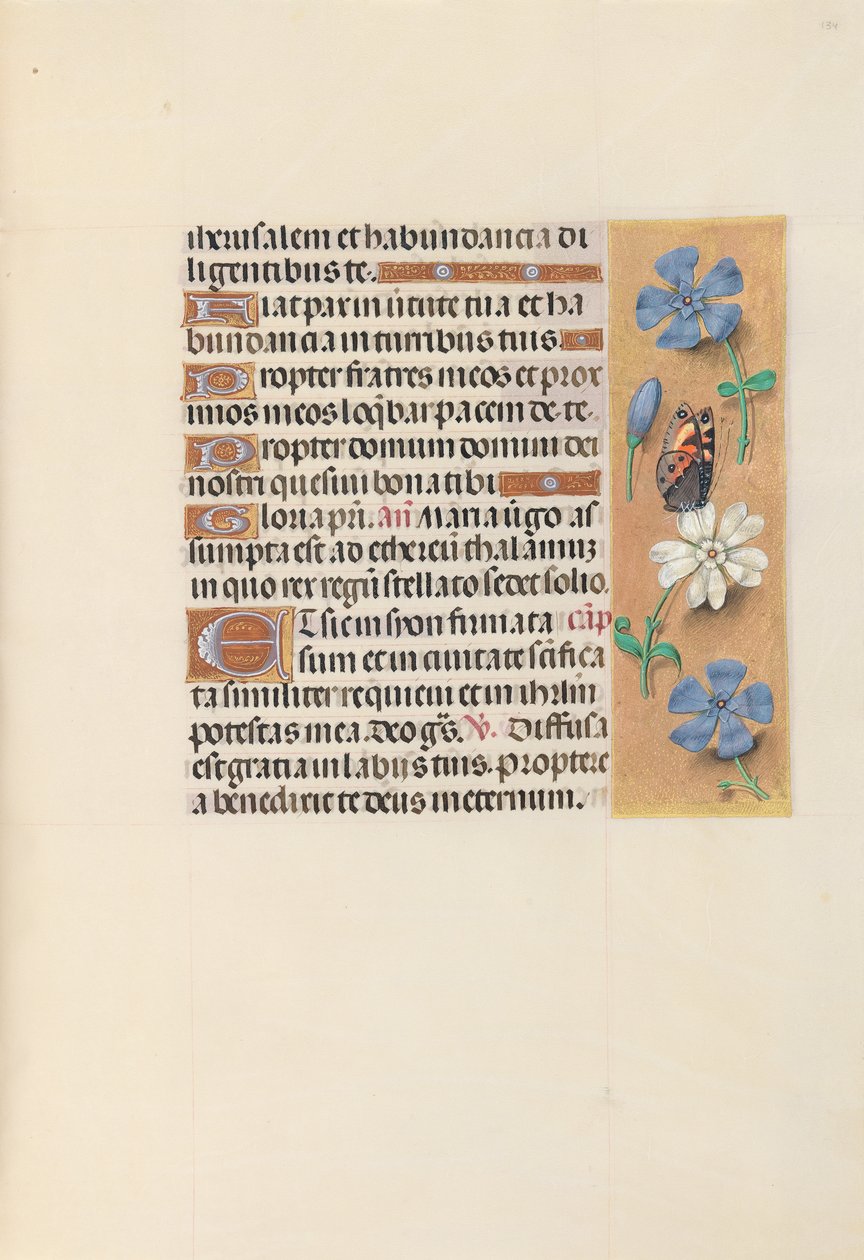 134
iherusalem et habundancia di
ligentibus te.
Fiat pax in ũtute tua et ha
bundancia in turribus tuis.
Propter fratres meos et prox
imos meos loq̃bar pacem de te.
Propter domum domini dei
nostri quesiui bona tibi
Gloria pr̃i. añ Maria ũgo as
sumpta est ad ethereũ thalamuz
in quo rex regũ stellato sedet solio.
ET sic in syon firmata cãp
sum et in ciuitate sc̃ifica
ta similiter requieui et in ihrl̃m
potestas mea. Deo gr̃s. Ṽ. Diffusa
est gratia in labijs tuis. Propter e
a benedixit te deus in eternum.